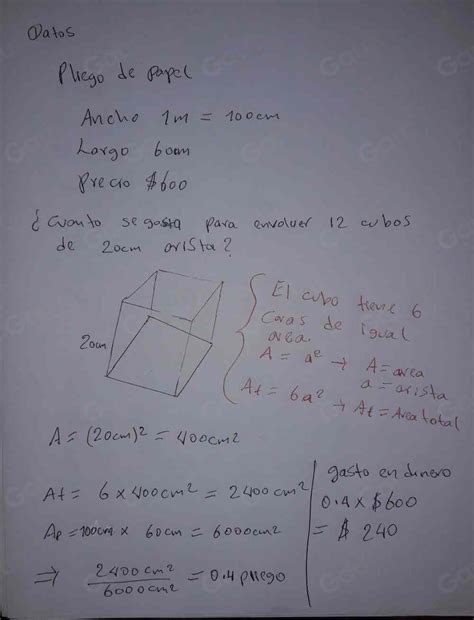 Datos
Pliego de papel
Ancho 1m = 100cm
Largo 60cm
Precio $600
¿Cuanto se gasta para envolver 12 cubos
de 20cm arista?
20cm
El cubo tiene 6
Caras de igual
area.
A = a² → A = area
a = arista
At = 6a² → At = Area total
A = (20cm)² = 400cm²
At = 6 × 400cm² = 2400cm²
Ap = 100cm × 60cm = 6000cm²
⇒ 2400cm² / 6000cm² = 0.4 pliego
gasto en dinero
0.4 x $600
= $ 240